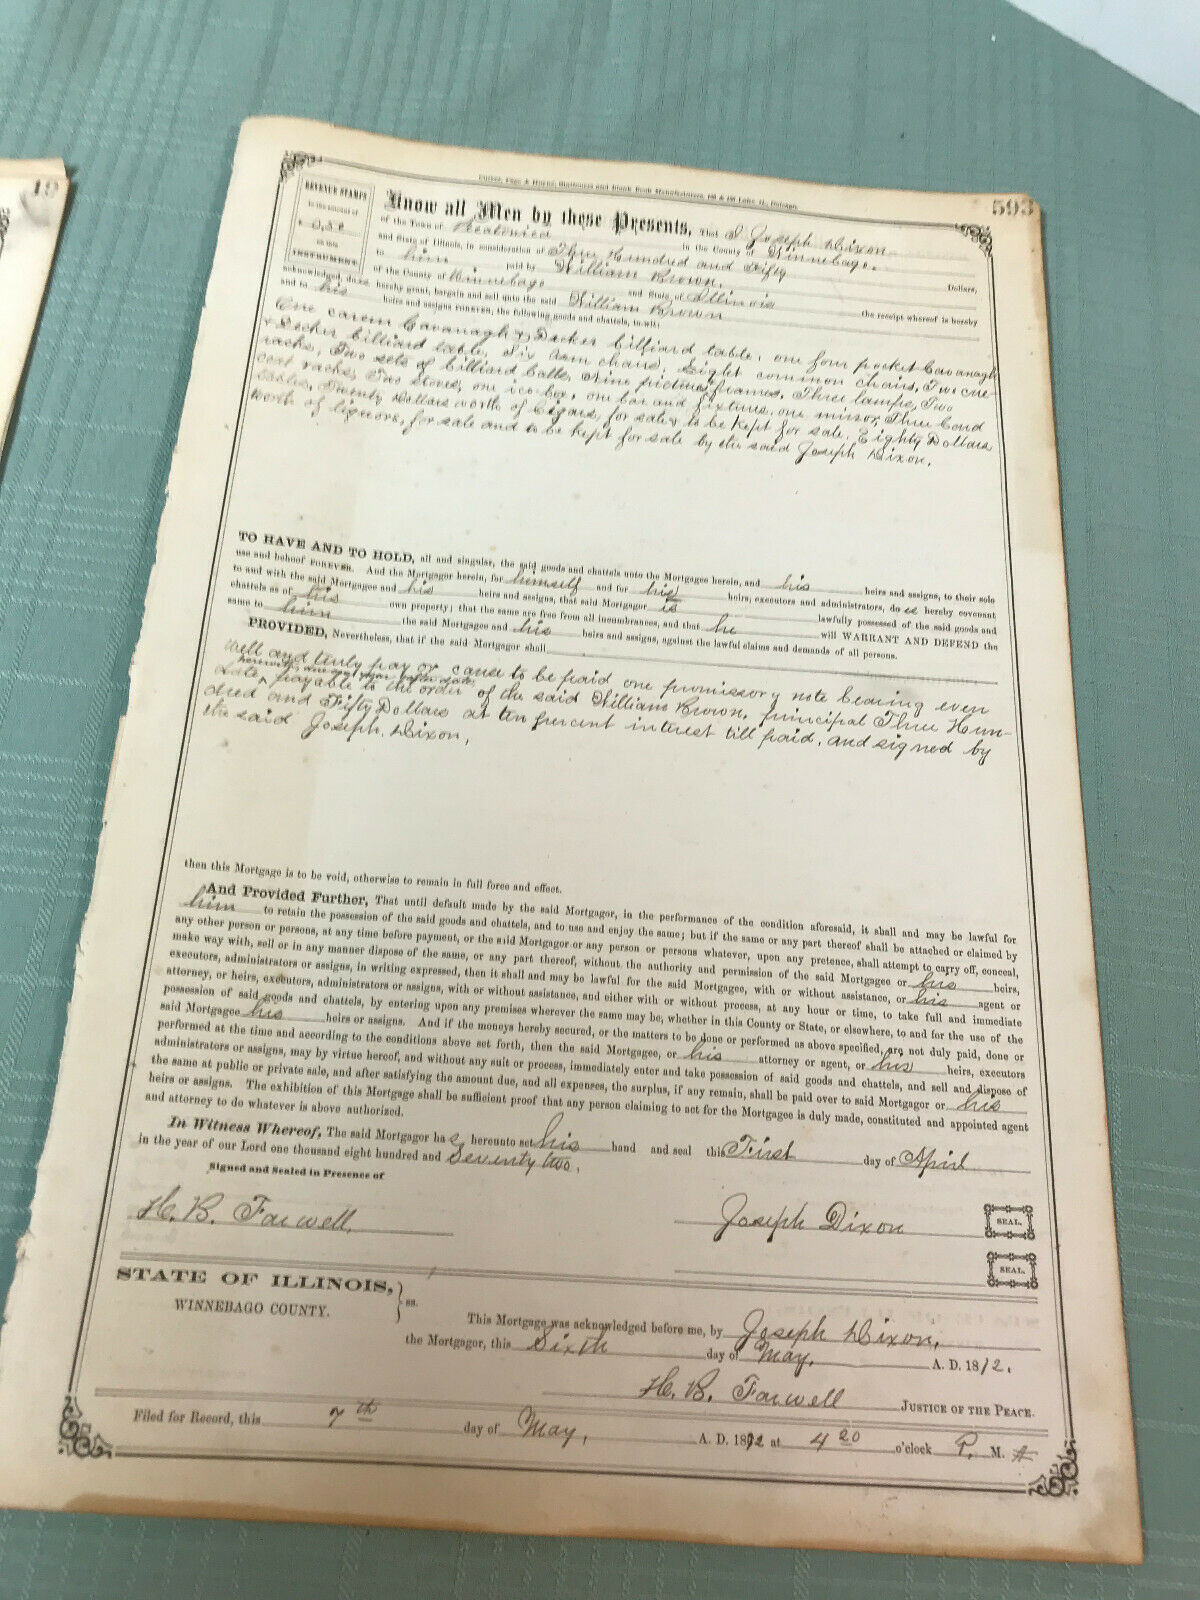 19
593
Culver, Page & Hoyne, Stationers and Blank Book Manufacturers, 118 & 120 Lake St., Chicago.
REVENUE STAMPS
to the amount of
on this
INSTRUMENT.
Know all Men by these Presents, That I Joseph Dixon
of the Town of Pecatonica in the County of Winnebago.
and State of Illinois, in consideration of Three Hundred and Fifty Dollars,
to him paid by William Brown.
of the County of Winnebago and State of Illinois the receipt whereof is hereby
acknowledged, does hereby grant, bargain and sell unto the said William Brown
and to his heirs and assigns FOREVER, the following goods and chattels, to-wit:
One carem Cavanagh & Decker billiard table, one four pocket Cavanagh
& Decker billiard table, Six arm chairs, Eight common chairs, Two cue-
racks, Two sets of billiard balls, Nine picture frames, Three lamps, Two
coat racks, Two stoves, one ice box, one bar and fixtures, one mirror, Three Cond
tables, Twenty Dollars worth of Cigars, for sale & to be kept for sale. Eighty Dollars
worth of liquors, for sale and to be kept for sale by the said Joseph Dixon.
TO HAVE AND TO HOLD, all and singular, the said goods and chattels unto the Mortgagee herein, and his heirs and assigns, to their sole
use and behoof FOREVER. And the Mortgagor herein, for himself and for his heirs, executors and administrators, do es hereby covenant
to and with the said Mortgagee and his heirs and assigns, that said Mortgagor is lawfully possessed of the said goods and
chattels as of his own property; that the same are free from all incumbrances, and that he will WARRANT AND DEFEND the
same to him the said Mortgagee and his heirs and assigns, against the lawful claims and demands of all persons.
PROVIDED, Nevertheless, that if the said Mortgagor shall
Well and truly pay or cause to be paid one promissory note bearing even
herewith, due one year after date,
date, payable to the order of the said William Brown, principal Three Hun-
dred and Fifty Dollars at ten per cent interest till paid, and signed by
the said Joseph Dixon,
then this Mortgage is to be void, otherwise to remain in full force and effect.
And Provided Further, That until default made by the said Mortgagor, in the performance of the condition aforesaid, it shall and may be lawful for
him to retain the possession of the said goods and chattels, and to use and enjoy the same; but if the same or any part thereof shall be attached or claimed by
any other person or persons, at any time before payment, or the said Mortgagor or any person or persons whatever, upon any pretence, shall attempt to carry off, conceal,
make way with, sell or in any manner dispose of the same, or any part thereof, without the authority and permission of the said Mortgagee or his heirs,
executors, administrators or assigns, in writing expressed, then it shall and may be lawful for the said Mortgagee, with or without assistance, or his agent or
attorney, or heirs, executors, administrators or assigns, with or without assistance, and either with or without process, at any hour or time, to take full and immediate
possession of said goods and chattels, by entering upon any premises wherever the same may be, whether in this County or State, or elsewhere, to and for the use of the
said Mortgagee his heirs or assigns. And if the moneys hereby secured, or the matters to be done or performed as above specified, are not duly paid, done or
performed at the time and according to the conditions above set forth, then the said Mortgagee, or his attorney or agent, or his heirs, executors
administrators or assigns, may by virtue hereof, and without any suit or process, immediately enter and take possession of said goods and chattels, and sell and dispose of
the same at public or private sale, and after satisfying the amount due, and all expenses, the surplus, if any remain, shall be paid over to said Mortgagor or his
heirs or assigns. The exhibition of this Mortgage shall be sufficient proof that any person claiming to act for the Mortgagee is duly made, constituted and appointed agent
and attorney to do whatever is above authorized.
In Witness Whereof, The said Mortgagor ha s hereunto set his hand and seal this First day of April
in the year of our Lord one thousand eight hundred and Seventy two,
Signed and Sealed in Presence of
H. B. Farwell, Joseph Dixon SEAL.
SEAL.
STATE OF ILLINOIS,
WINNEBAGO COUNTY. } ss.
This Mortgage was acknowledged before me, by Joseph Dixon,
the Mortgagor, this Sixth day of May, A. D. 1872.
H. B. Farwell JUSTICE OF THE PEACE.
Filed for Record, this 7th day of May, A. D. 1872 at 4 20 o'clock P. M.